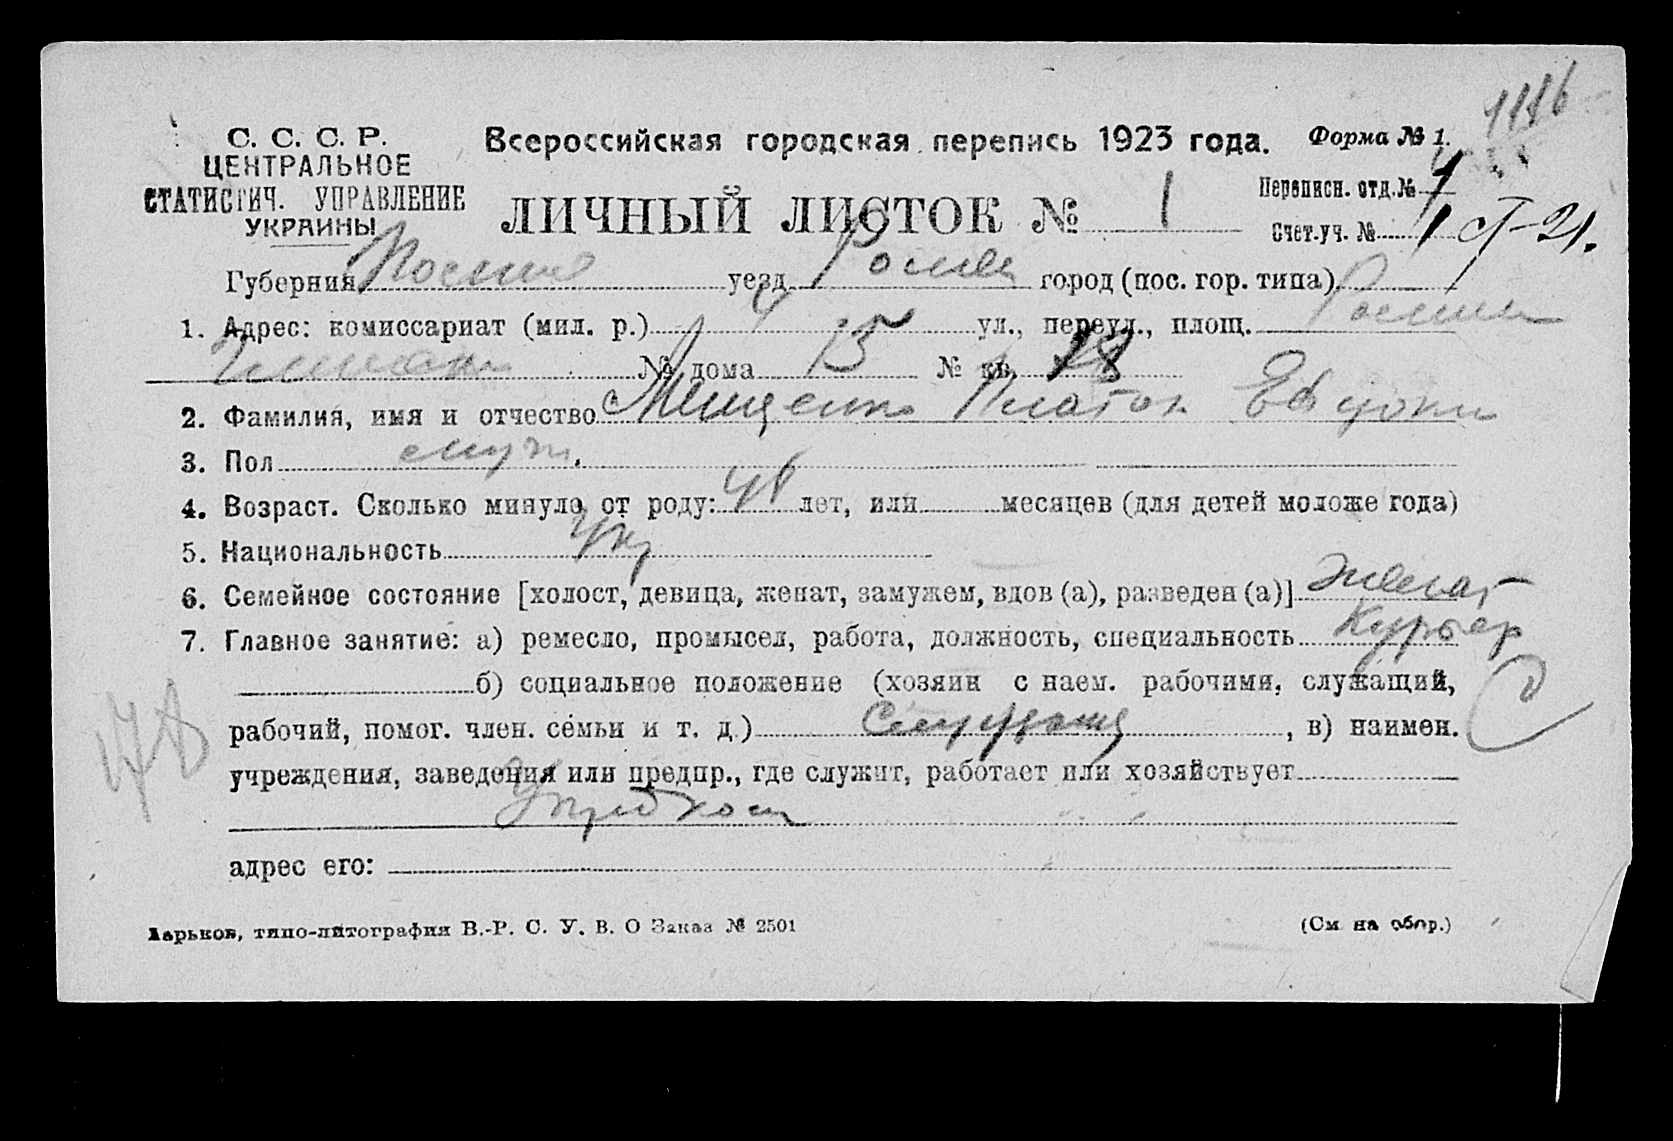 1116
С. С. С. Р.
ЦЕНТРАЛЬНОЕ
СТАТИСТИЧ. УПРАВЛЕНИЕ
УКРАИНЫ
Всероссийская городская перепись 1923 года.
Форма № 1.
ЛИЧНЫЙ ЛИСТОК № 1
Переписн. отд. №
Счет.уч. № 1
Губерния уезд Ромен город (пос. гор. типа) Ромны
1. Адрес: комиссариат (мил. р.) ул., переул., площ.
№ дома 15 № кв. 18
2. Фамилия, имя и отчество Мищенко Платон Евдоким
3. Пол муж.
4. Возраст. Сколько минуло от роду: 48 лет, или месяцев (для детей моложе года)
5. Национальность Укр
6. Семейное состояние [холост, девица, женат, замужем, вдов (а), разведен (а)] женат
7. Главное занятие: а) ремесло, промысел, работа, должность, специальность Курьер
б) социальное положение (хозяин с наем. рабочими, служащий,
рабочий, помог. член. семьи и т. д.) Служащ , в) наимен.
учреждения, заведения или предпр., где служит, работает или хозяйствует
адрес его:
Харьков, типо-литография В.-Р. С. У. В. О Заказ № 2501
(См на обор.)